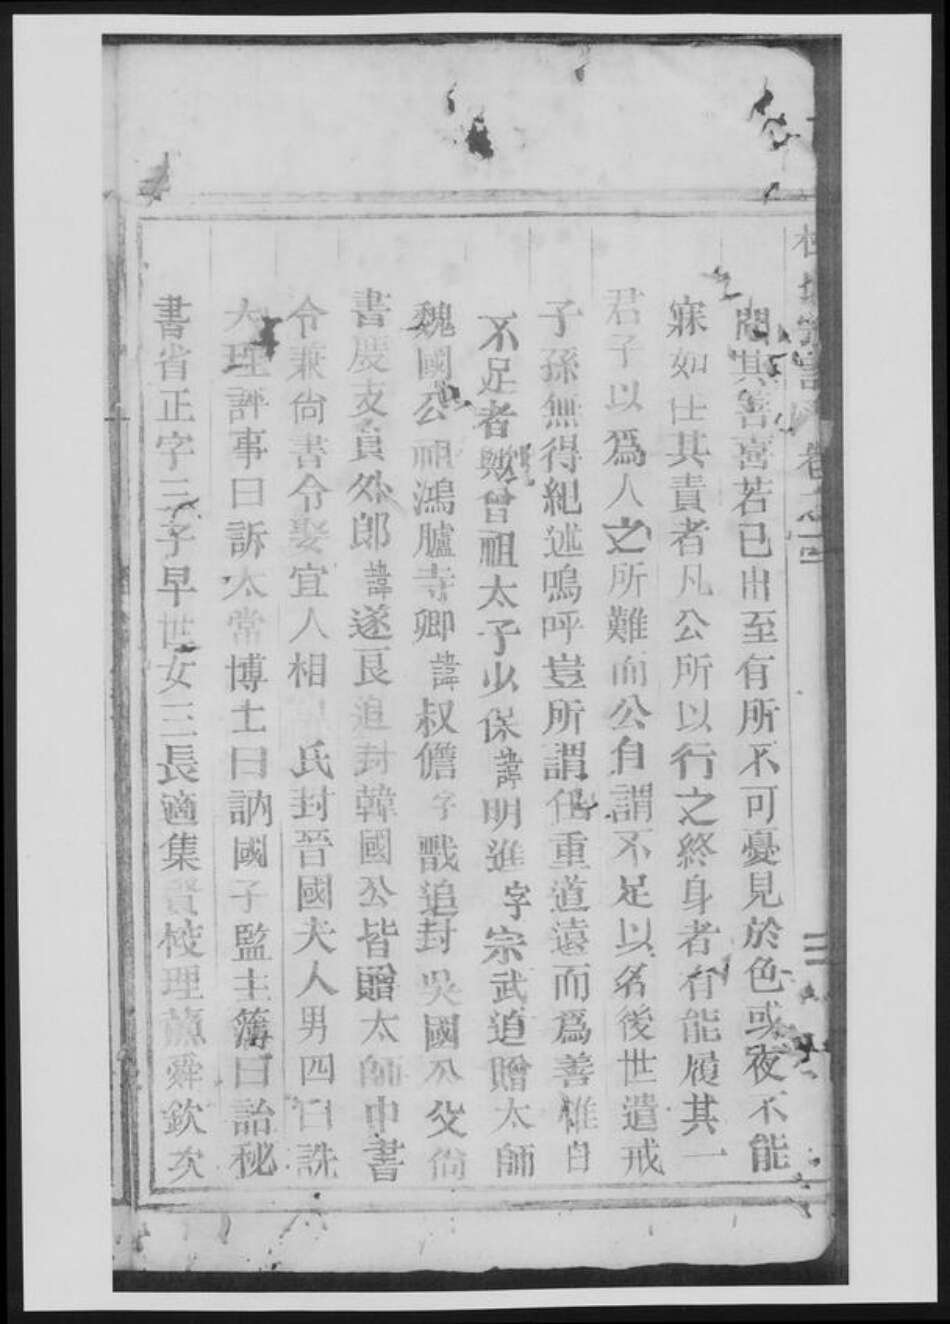 杜城宗言 卷之四 三
聞其善喜若已出至有所不可憂見於色或夜不能
寐如任其責者凡公所以行之終身者有能履其一
君子以爲人之所難而公自謂不足以名後世遺戒
子孫無得紀述嗚呼豈所謂任重道遠而爲善惟自
不足者歟曾祖太子少保諱明進字宗武道贈太師
魏國公祖鴻臚寺卿諱叔儋字戬追封吳國公父尙
書度支員外郎諱遂良追封韓國公皆贈太師中書
令兼尙書令娶宜人相 氏封晉國夫人男四曰詵
大理評事曰訴太常博士曰訥國子監主簿曰詒秘
書省正字二子早世女三長適集賢校理蘇舜欽次